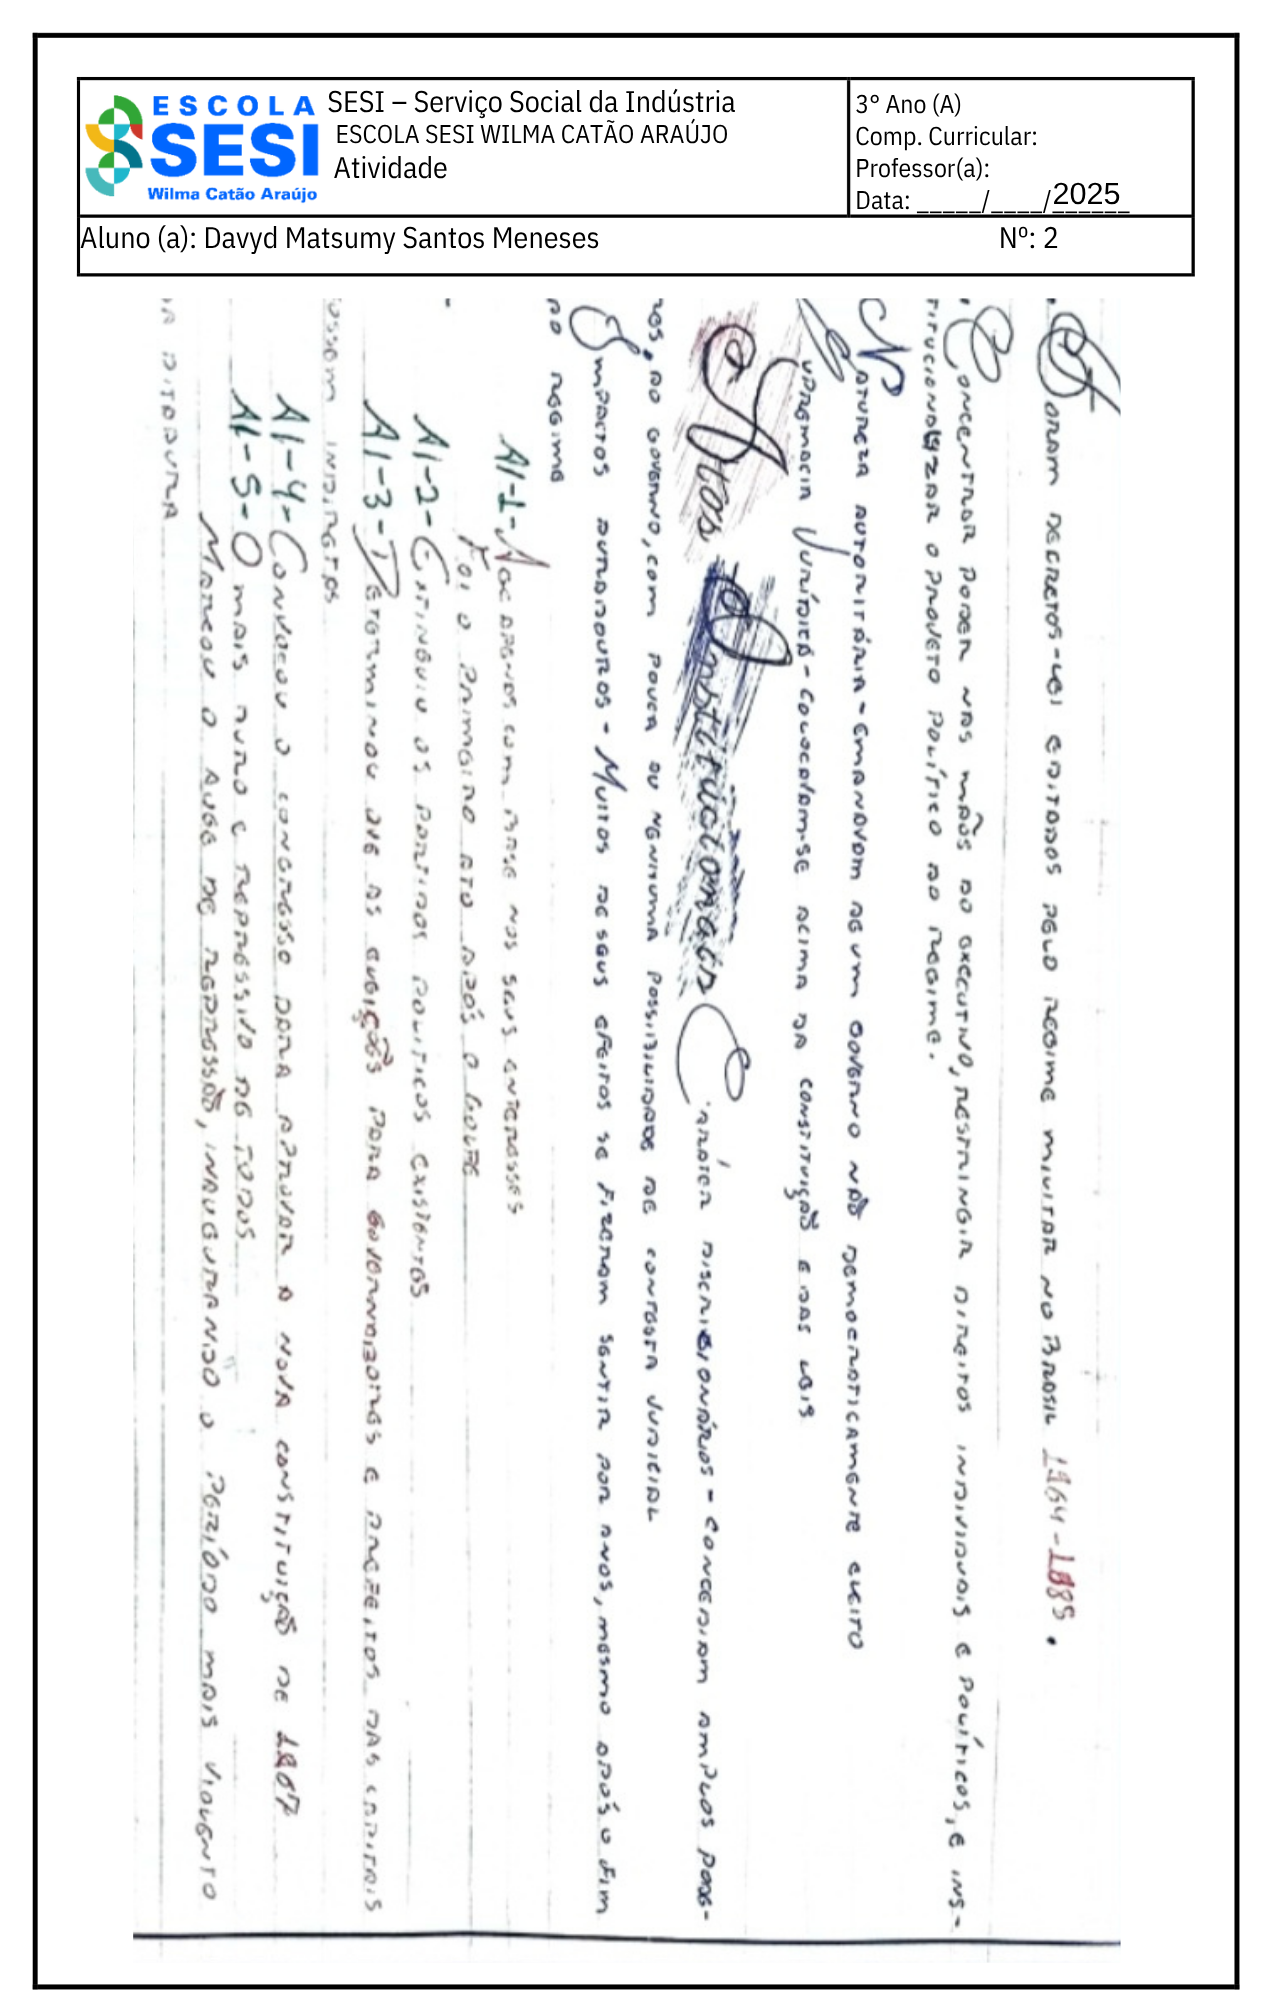 ESCOLA
SESI
Wilma Catão Araújo
SESI – Serviço Social da Indústria
ESCOLA SESI WILMA CATÃO ARAÚJO
Atividade
3° Ano (A)
Comp. Curricular:
Professor(a):
Data: _____/____/2025
Aluno (a): Davyd Matsumy Santos Meneses Nº: 2
Foram decretos-lei editados pelo regime militar no Brasil 1964-1985.
Concentrar poder nas mãos do executivo, restringir direitos individuais e políticos, e ins-
titucionalizar o projeto político do regime.
Natureza autoritária - Emanavam de um governo não democraticamente eleito
Supremacia Jurídica - Colocavam-se acima da constituição e das leis
Atos Institucionais Caráter discricionários - Concediam amplos pode-
res, ao governo, com pouca ou nenhuma possibilidade de contesta judicial
Impactos duradouros - Muitos de seus efeitos se fizeram sentir por anos, mesmo após o fim
do regime
AI-1- com base nos seus enteresses
Foi o primeiro ato após o golpe
AI-2- Extinguiu os partidos políticos existentes
AI-3- Determinou que as eleições para governadores e prefeitos das capitais
fossem indiretas
AI-4- Convocou o congresso para aprovar a nova constituição de 1967
AI-5- O mais duro e repressivo de todos
Marcou o auge de repressão, inaugurando o período mais violento
da ditadura